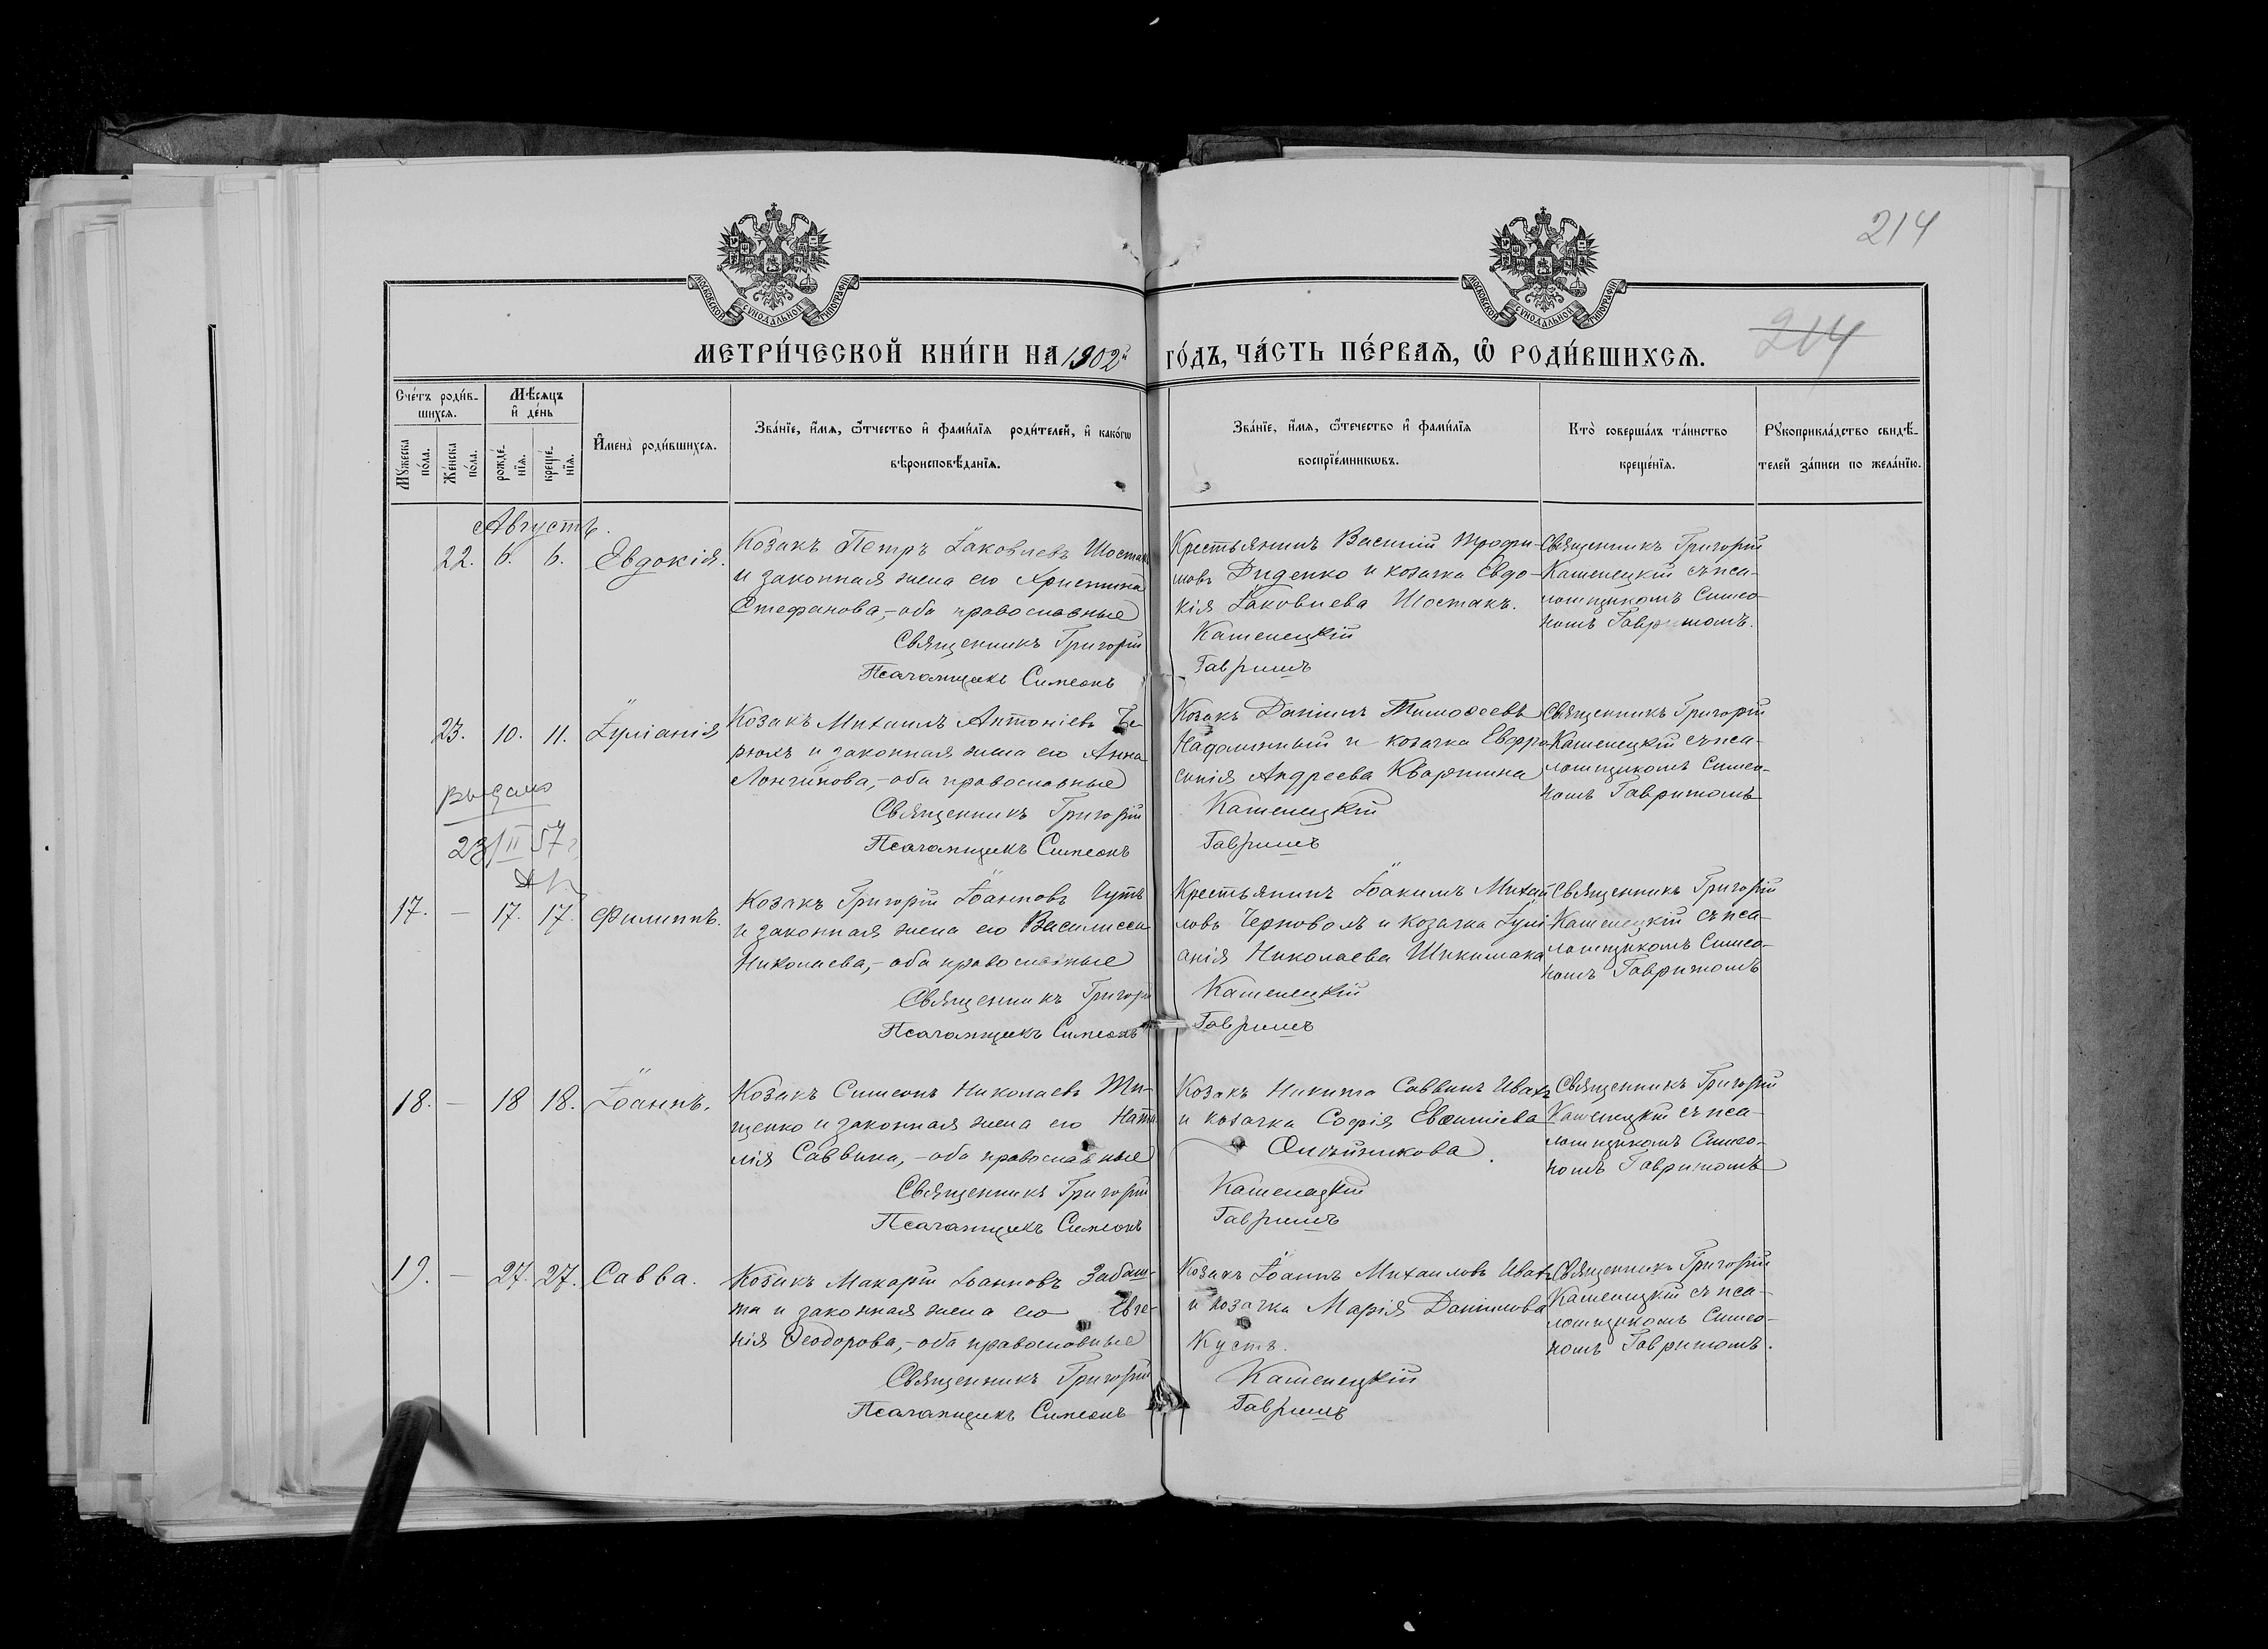 214
МОСКОВСКОЙ СУНОДАЛЬНОЙ ТИПОГРАФІИ
МОСКОВСКОЙ СУНОДАЛЬНОЙ ТИПОГРАФІИ
МЕТРИ́ЧЕСКОЙ КНИ́ГИ НА 1902й ГО́ДЪ, ЧА́СТЬ ПЕ́РВАѦ, Ѡ҆ РОДИ́ВШИХСѦ.
214
Сче́тъ роди́в-
шихсѧ.
Мꙋ́жеска по́ла.
Же́нска по́ла.
Мѣ́сѧцъ
и҆ де́нь
рожде́-
нїѧ.
креще́-
нїѧ.
И҆мена̀ роди́вшихсѧ.
Зва́нїе, и҆́мѧ, ѻ҆́тчество и҆ фами́лїѧ роди́телей, и҆ како́гѡ
вѣроисповѣ́данїѧ.
Зва́нїе, и҆́мѧ, ѻ҆́течество и҆ фами́лїѧ
воспрїе́мникѡвъ.
Кто̀ соверша́лъ та́инство
креще́нїѧ.
Рꙋкоприкла́дство свидѣ́-
телей за́писи по жела́нїю.
Августъ.
22. 6. 6. Евдокія.
Козакъ Петръ Іаковлевъ Шостакъ
и законная жена его Христина
Стефанова,-оба православные
Священникъ Григорій Каменецкій
Псаломщикъ Симеонъ Гавришъ
Крестьянинъ Василій Трофи-
мовъ Диденко и козачка Евдо-
кія Іаковлева Шостакъ.
Священникъ Григорій
Каменецкій съ пса-
ломщикомъ Симео-
номъ Гавришомъ.
23. 10. 11. Іуліанія
Козакъ Михаилъ Антоніевъ
и законная жена его Анна
Лонгинова,-оба православные
Священникъ Григорій Каменецкій
Псаломщикъ Симеонъ Гавришъ
Козакъ Даніилъ Тимоѳеевъ
и козачка Евфро-
синія Андреева
Священникъ Григорій
Каменецкій съ пса-
ломщикомъ Симео-
номъ Гавришомъ
Выдано
II 57 г
17. – 17. 17. Филиппъ.
Козакъ Григорій Іоанновъ
и законная жена его Василисса
Николаева,-оба православные
Священникъ Григорій Каменецкій
Псаломщикъ Симеонъ Гавришъ
Крестьянинъ Іоакимъ Михай-
ловъ Черноволъ и козачка Іулі-
анія Николаева
Священникъ Григорій
Каменецкій съ пса-
ломщикомъ Симео-
номъ Гавришомъ
18. – 18 18. Іоаннъ.
Козакъ Симеонъ Николаевъ Ти-
щенко и законная жена его Ната-
лія Саввина,-оба православные
Священникъ Григорій Каменецкій
Псаломщикъ Симеонъ Гавришъ
Козакъ Никита Саввинъ
и козачка Софія Евѳиміева
Священникъ Григорій
Каменецкій съ пса-
ломщикомъ Симео-
номъ Гавришомъ
19. – 27. 27. Савва.
Козакъ Макарій Іоанновъ Забаш-
та и законная жена его Евге-
нія Ѳеодорова,-оба православные
Священникъ Григорій Каменецкій
Псаломщикъ Симеонъ Гавришъ
Козакъ Іоаннъ Михаиловъ
и козачка Марія Даніилова
Кустъ.
Священникъ Григорій
Каменецкій съ пса-
ломщикомъ Симео-
номъ Гавришомъ.